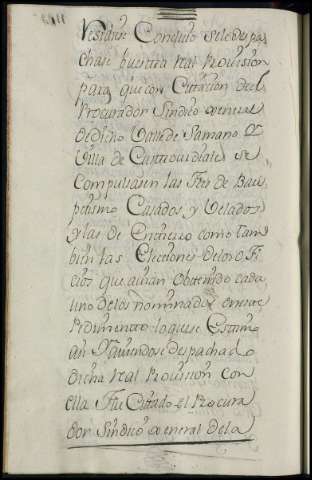 Vestidura Conduto sele despa
chase vuestra real Provision
para que con Citacion del
Procurador Sindico xeneral
de dicho Valle de Samano Y
Villa de Castrourdiales se
Compulsasen las Fees de Bau
ptismo Casados, y Velados
y las de Entierro como tam
bien las Elecciones de los ofi
cios que avian obtenido cada
uno de los nominados en este
Pedimento lo que se Estimo
asi Y aviendose despachado
dicha real Provision con
ella Fue Citado el Procura
dor Sindico xeneral de la